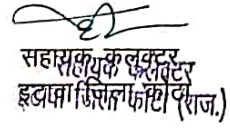 सहायक कलक्टर
सहायक कलक्टर
इटावा जिला कोटा (राज.)